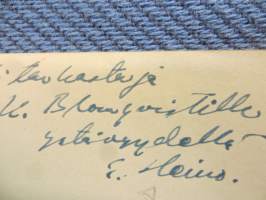 tarkastaja
K. Blomqvistille
ystävyydellä
E. Heino.